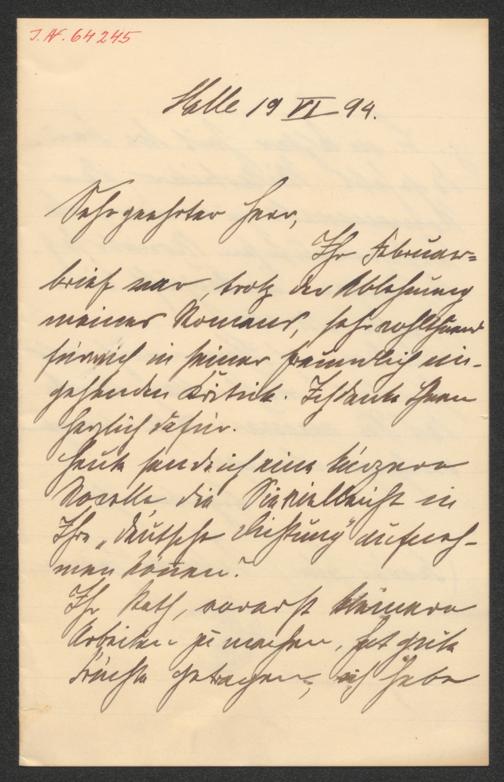 J.N. 64245
Halle 19 VI 94.
Sehr geehrter Herr,
Ihr Februar-
brief war, trotz der Ablehnung
meines Romans, sehr wohlthuend
für mich in seiner freundlich ein-
gehenden Kritik. Ich danke Ihnen
herzlich dafür.
Heute sende ich eine kürzere
Novelle die Sie vielleicht in
Ihre „Deutsche Dichtung" aufneh-
men können?
Ihr Rath, vorerst kleinere
Arbeiten zu machen, hat gute
Früchte getragen, ich habe